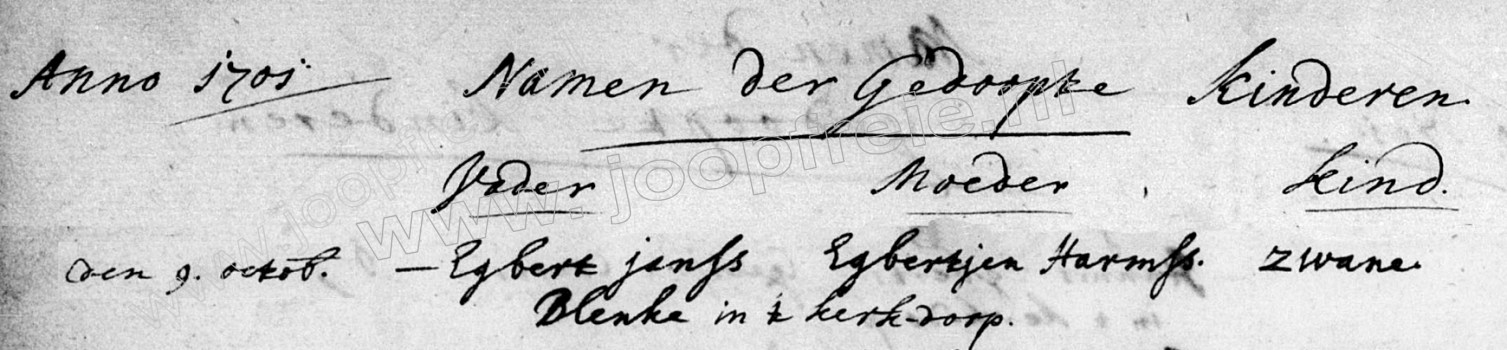 Anno 1701 Namen der Gedoopte Kinderen.
Vader Moeder Kind.
den 9. octob. — Egbert janss Egbertjen Harmss. zwane.
Blenke in t kerk-dorp.